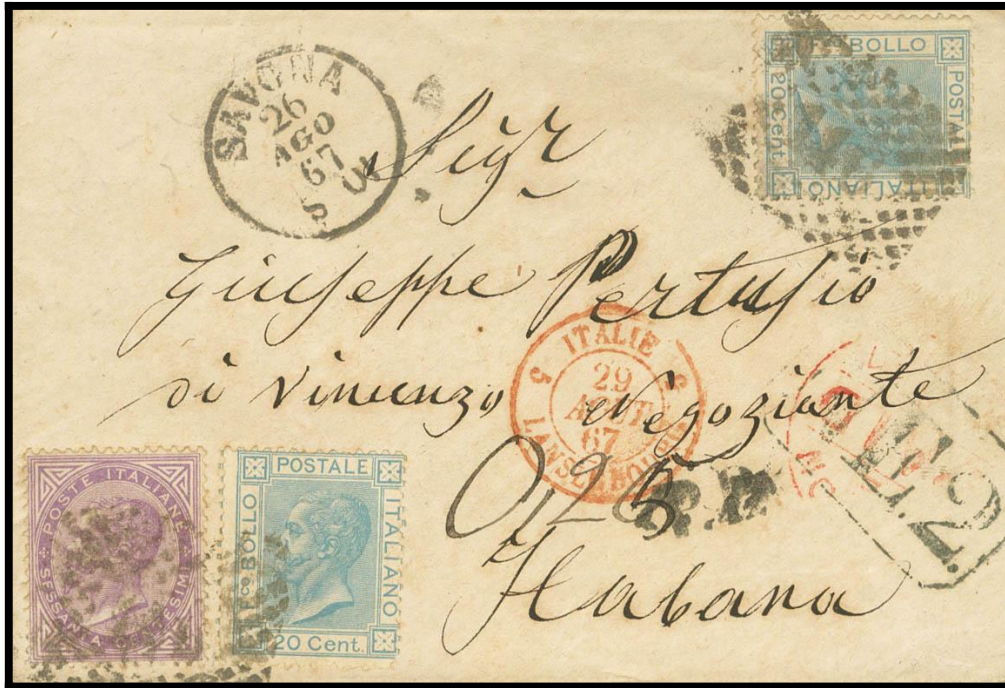 SAVONA
26
AGO
67
5 S
F.co BOLLO
POSTALE
ITALIANO
20 Cent.
Sigr
Giuseppe Pertusio
di Vincenzo Negoziante
ITALIE
29
AOUT
67
5
5
E.2
P.D.
Habana
POSTE ITALIANE
SESSANTA CENTESIMI
F.co BOLLO
POSTALE
ITALIANO
20 Cent.